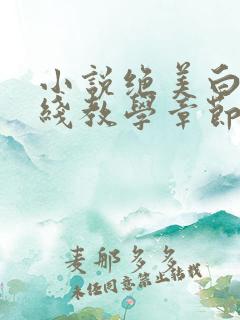 小説絶美白
綫教學章節
麦郍多多
未经同意禁止转载